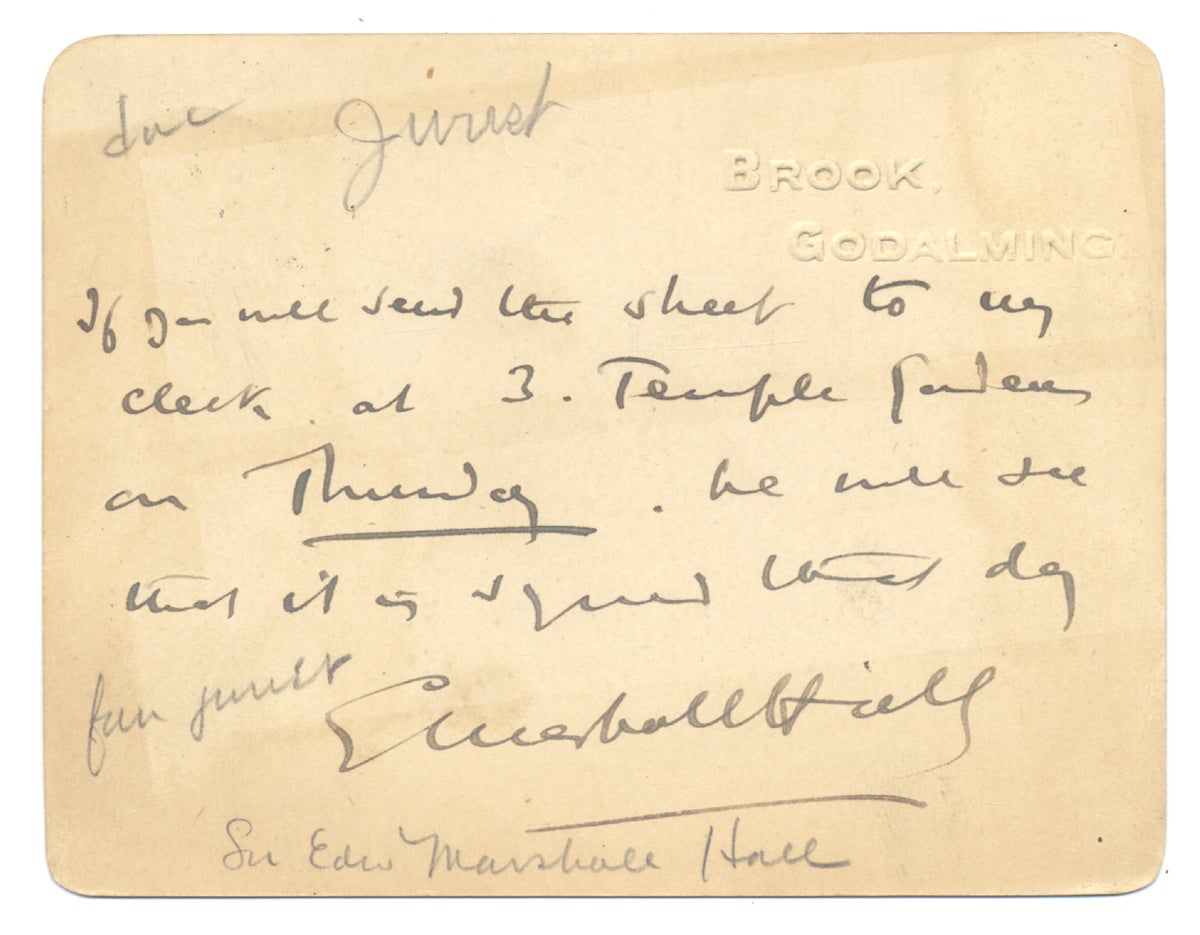 Jurist
BROOK,
GODALMING
If you will send the sheet to my
clerk. at 3. Temple Gardens
on Thursday. he will see
that it is signed that day
jurist
E Marshall Hall
Sir Edw Marshall Hall